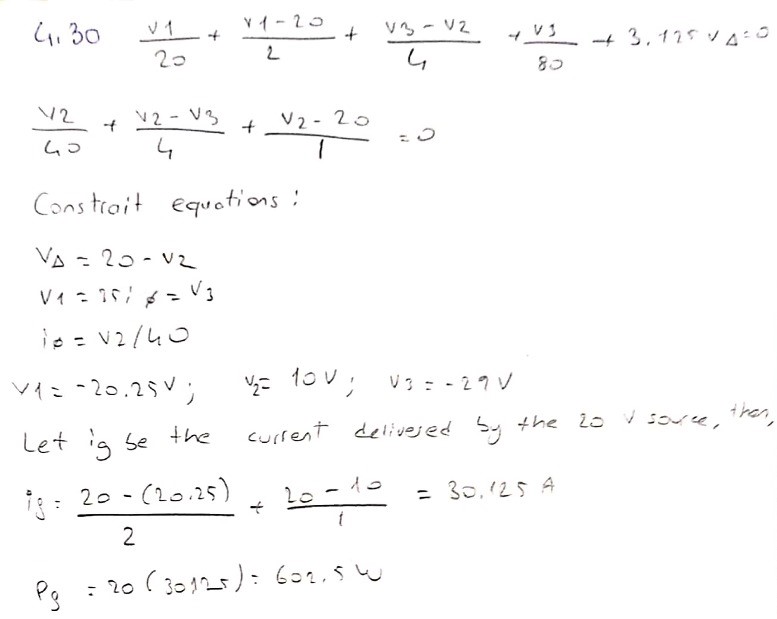 4.30 v1/20 + v1-20/2 + v3-v2/4 + v3/80 + 3.125 vΔ=0
v2/40 + v2-v3/4 + v2-20/1 = 0
Constrait equations:
VΔ = 20-v2
v1 = 35iø = v3
iø = v2/40
v1 = -20.25V; v2= 10V; v3 = -29V
Let ig be the current delivered by the 20 V source, then,
ig = 20-(20.25)/2 + 20-10/1 = 30.125 A
Pg = 20(30125) = 602.5W